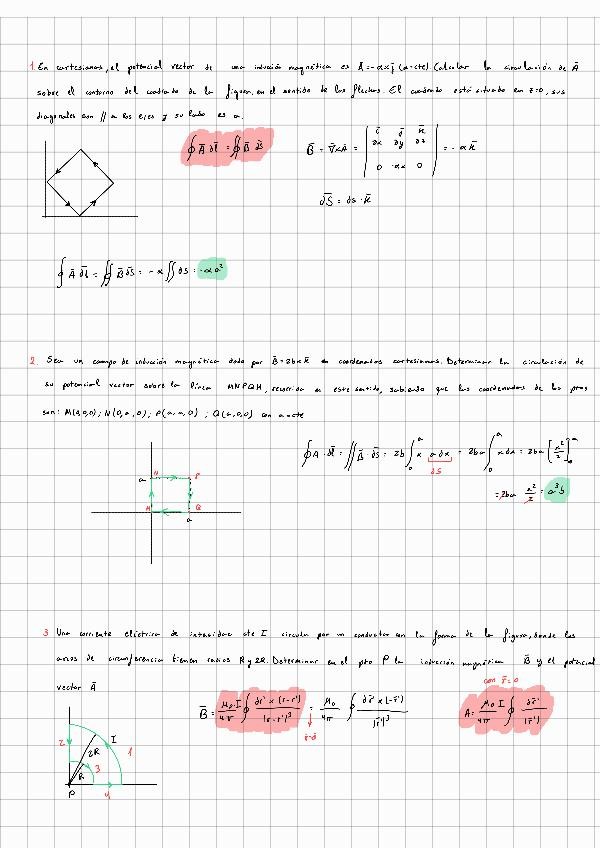 1. En cartesianas, el potencial vector de una inducción magnética es Ā=-αxj̄ (α=cte). Calcular la circulación de Ā
sobre el contorno del cuadrado de la figura, en el sentido de las flechas. El cuadrado está situado en z=0, sus
diagonales son // a los ejes y su lado es a.
∮ Ā d̄l = ∬ B̄ d̄s
B̄ = ∇̄xĀ = | ī j̄ k̄ ∂x ∂y ∂z 0 -αx 0 | = -αk̄
d̄S = ds · k̄
∮ Ā d̄l = ∬ B̄ d̄s = -α ∬ ds = -αa²
2. Sea un campo de inducción magnética dado por B̄=2bxk̄ en coordenadas cartesianas. Determinar la circulación de
su potencial vector sobre la línea MNPQM, recorrida en este sentido, sabiendo que las coordenadas de los
son: M(0,0,0); N(0,a,0); P(a,a,0); Q(a,0,0) con a=cte
∮ A · d̄l = ∬ B̄ · d̄s = 2b ∫₀ᵃ x a dx = 2ba ∫₀ᵃ x dx = 2ba [x²/2]₀ᵃ
dS
= 2ba x²/2 = a³b
a N P
M Q
a
3 Una corriente eléctrica de intensidad cte I circula por un conductor con la forma de la figura, donde los
arcos de circunferencia tienen radios R y 2R. Determinar en el pto P la inducción magnética B̄ y el potencial
vector Ā
con r̄=0
B̄ = μ₀·I/4π ∮ dr' x (r-r')/|r-r'|³ = μ₀/4π ∮ dr̄' x (-r̄')/|r̄'|³
A = μ₀ I/4π ∮ dr̄'/|r̄'|
I
2 2R 1
R 3
P 4